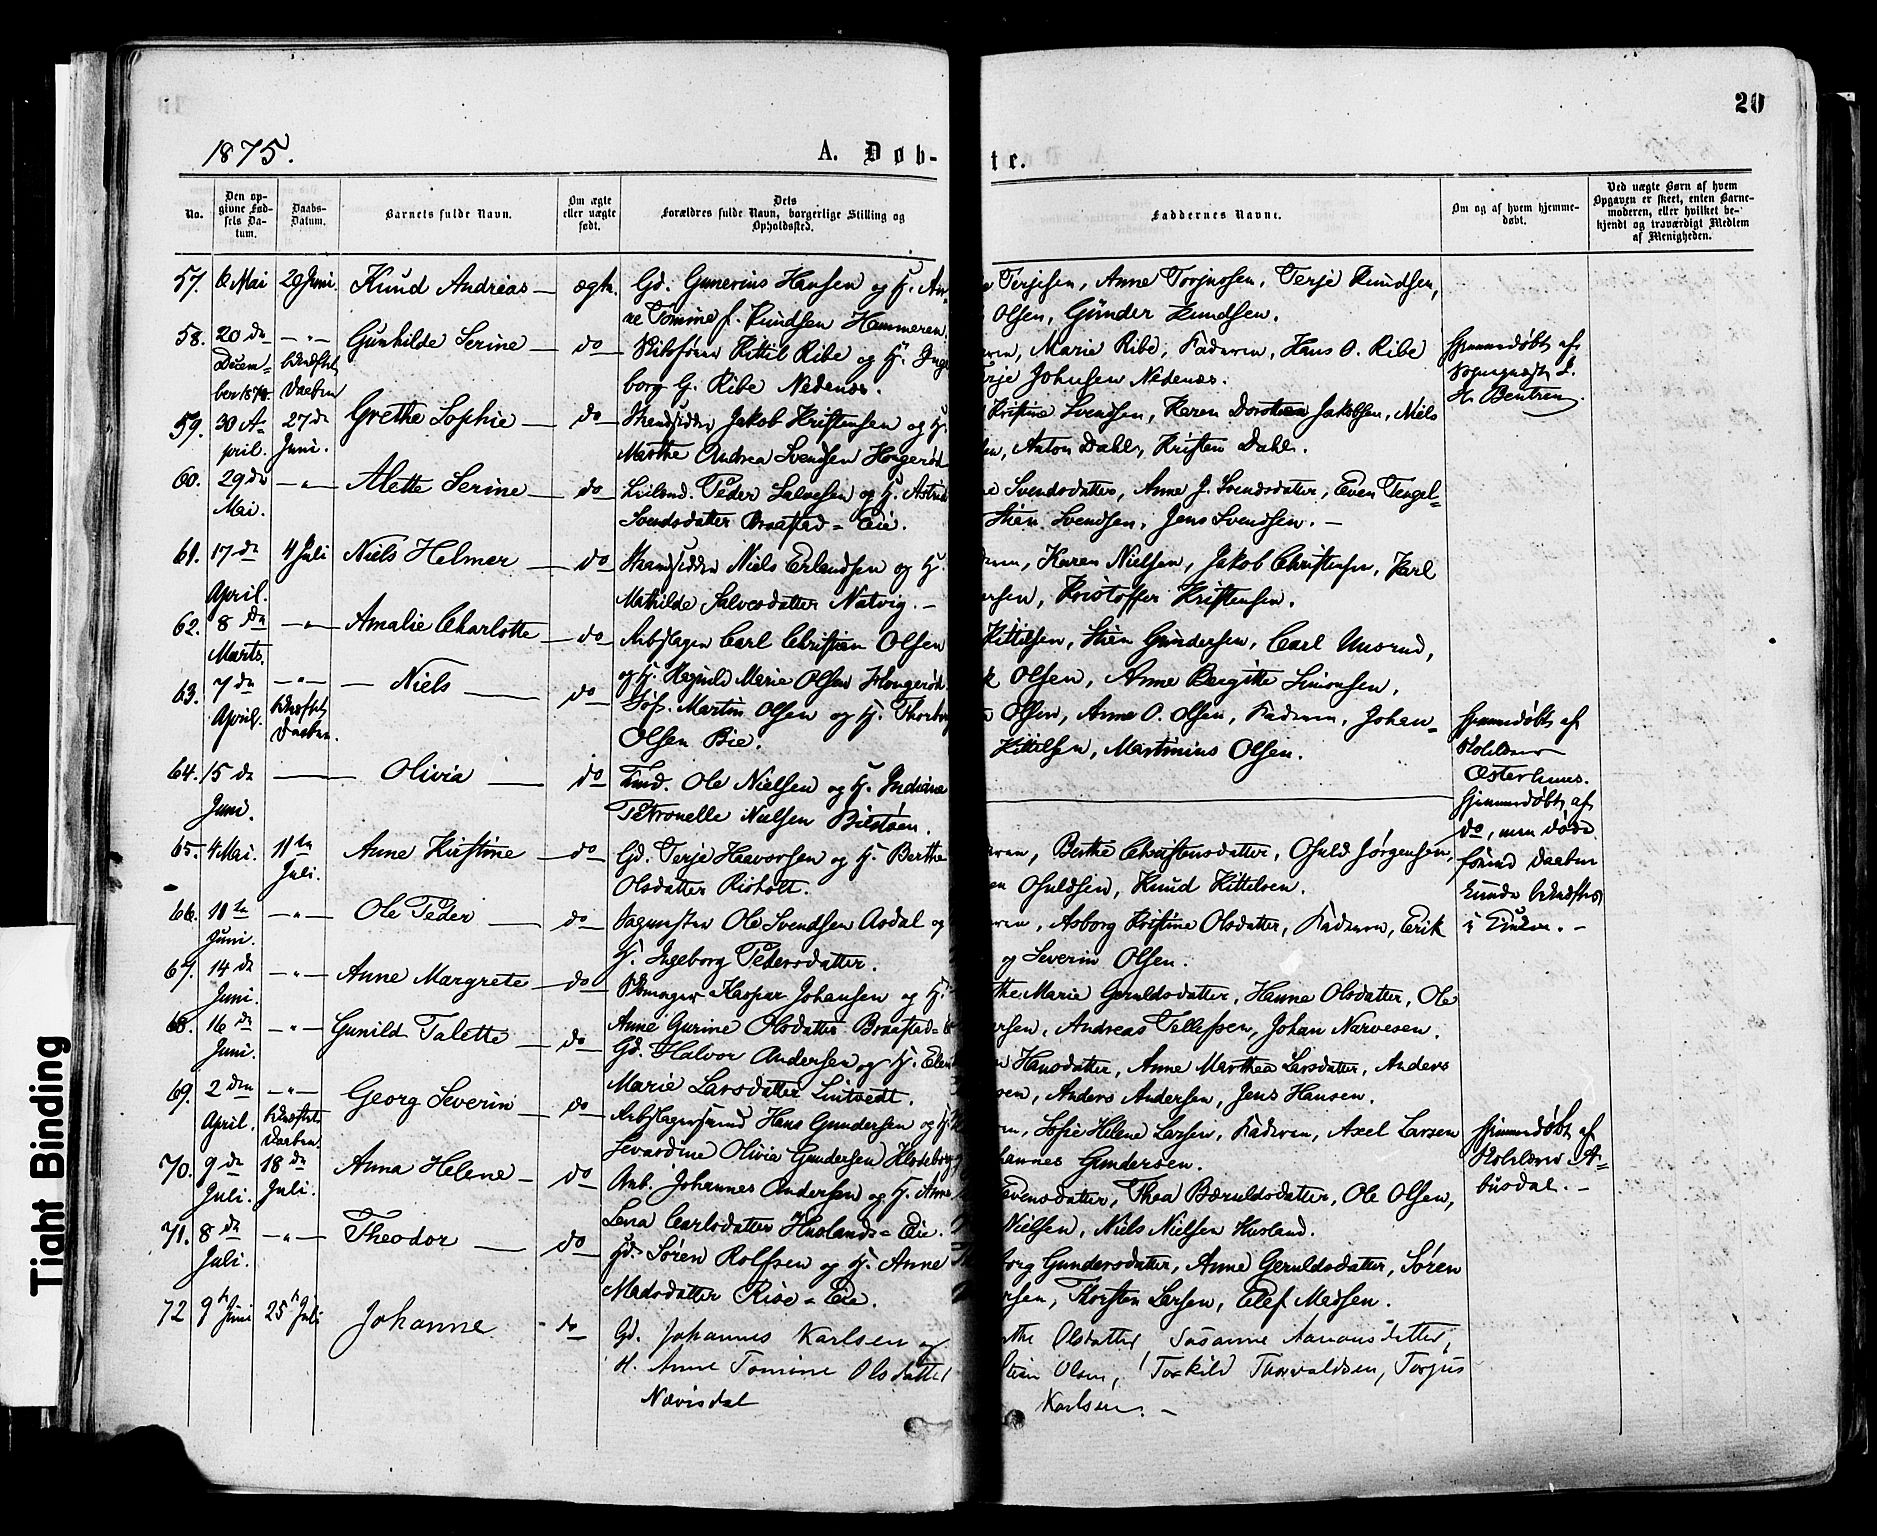 20
1875.
A. Døb-
te.
No.
Den op-
givne Fød-
sels Da-
tum.
Daabs-
Datum.
Barnets fulde Navn.
Om ægte
eller uægte
født.
Dets
Forældres fulde Navn, borgerlige Stilling og
Opholdssted.
Faddernes Navne.
Om og af hvem hjemme-
døbt.
Ved uægte Børn af hvem
Opgaven er skeet, enten Barne-
moderen, eller hvilket be-
kjendt og troværdigt Medlem
af Menigheden.
57. 6 Mai 20 Juni. Knud Andreas — ægte. Gd. Gunerius Hansen og H. An-
ne Tomine f. Knudsen Hammeren.
Terjesen, Anne Torjussen, Terje Knudsen,
Olsen, Gunder Knudsen.
58. 20 de Decem-
ber 1874. — " — bekræftet
Daaben Gunhilde Serine — do — Skibsfører Kittil Ribe og H. Inge
borg G. Ribe Nedenæs.
Marie Ribe, Faderen, Hans O. Ribe
Terje Johnsen Nedenæs.
Hjemmedøbt af
59. 30 A-
pril. 27 de
Juni. Grethe Sophie — do — Strandsidder Jakob Kristensen og H.
Marthe Andrea Svendsen Hougerød
Kristine Svendsen, Karen Dorothea Jakobsen, Niels
Anton Dahl, Kristen Dahl.
60. 29 de
Mai. — " — Alette Serine — do Leilend. Peder Salvesen og H. Astrid
Svendsdatter Braastad - Eie.
Svendsdatter, Anne J. Svendsdatter, Even Tengel-
Stien Svendsen, Jens Svendsen. —
61. 17 de
April. 4 Juli Niels Helmer — do — Strandsidder Niels Erlendsen og H.
Mathilde Salvesdatter Natvig. —
Karen Nielsen, Jakob Christensen, Karl
Kristoffer Kristensen.
62. 8 de
Marts. — " — Amalie Charlotte — do — Arbs. Carl Christian Olsen
og H. Ragnild Marie Olsen Hougerød
Kittilsen, Stien Gundersen, Carl
Olsen, Anne Bergitte Simonsen.
63. 7 de
April. — " — bekræftet
Daaben. — Niels — do — Søf. Martin Olsen og H. Thorbor
Olsen Bie.
Olsen, Anne O. Olsen, Faderen, Johan-
Kittilsen, Martinius Olsen.
Hjemmedøbt af
Østerhuus.
64. 15 de
Juni. — Olivia — do Ole Nielsen og H. Indiane
Petronelle Nielsen Biestøen.
Hjemmedøbt af
do, men døde
førend Daaben
kunde bekræftes
i Kirken. —
65. 4 Mai. 11 te
Juli. Anne Kirstine — do — Gd. Terje Haavorsen og H. Berthe
Olsdatter Risholt.
Berthe Christensdatter, Osuld Jørgensen,
Osuldsen, Knud Kittelsen.
66. 11 te
Juni. — " — Ole Peder — do — Sagmester Ole Svendsen Asdal og
H. Ingeborg Pedersdatter.
Asborg Kristine Olsdatter, Faderen, Erik
og Severin Olsen.
67. 14 de
Juni. — " — Anne Margrete — do — Skomager Kaspar Johansen og H.
Anne Gurine Olsdatter Braastad-
Marie Geruldsdatter, Hanne Olsdatter, Ole
Andreas Tellefsen, Johan Narvesen.
68. 16 de
Juni. — " — Gunild Talette — do — Gd. Halvor Andersen og H.
Marie Larsdatter Lintvedt.
Hansdatter, Anne Marthea Larsdatter, Anders
Anders Andersen, Jens Hansen.
69. 2 den
April. — " — bekræftet
Daaben. Georg Severin — do — Hans Gundersen og H.
Sevardine Olivia Gundersen Kloseborg
Sofie Helene Larsen, Faderen, Axel Larsen
Johannes Gundersen.
Hjemmedøbt af
A-
busdal. —
70. 9 de
Juli. 18 de
Juli. Anna Helene — do — Arb. Johannes Andersen og H. Anne
Lena Carlsdatter Huslands - Eie.
Evensdatter, Thea Bæruldsdatter, Ole Olsen,
Nielsen, Niels Nielsen Husland.
71. 8 de
Juli. — " — Theodor — do — Hd. Søren Rolfsen og H. Anne
Madsdatter Rise - Eie.
Gundersdatter, Anne Geruldsdatter, Søren
Thorsten Larsen, Elef Madsen.
72 9 Juni 25 Juli Johanne - do Gd. Johannes Karlsen og
H. Anne Tomine Olsdatter
Nævisdal
Olsdatter, Susanne Aanonsdatter,
Olsen, Torkild Thorvaldsen, Torjus
Karlsen. —
Tight Binding